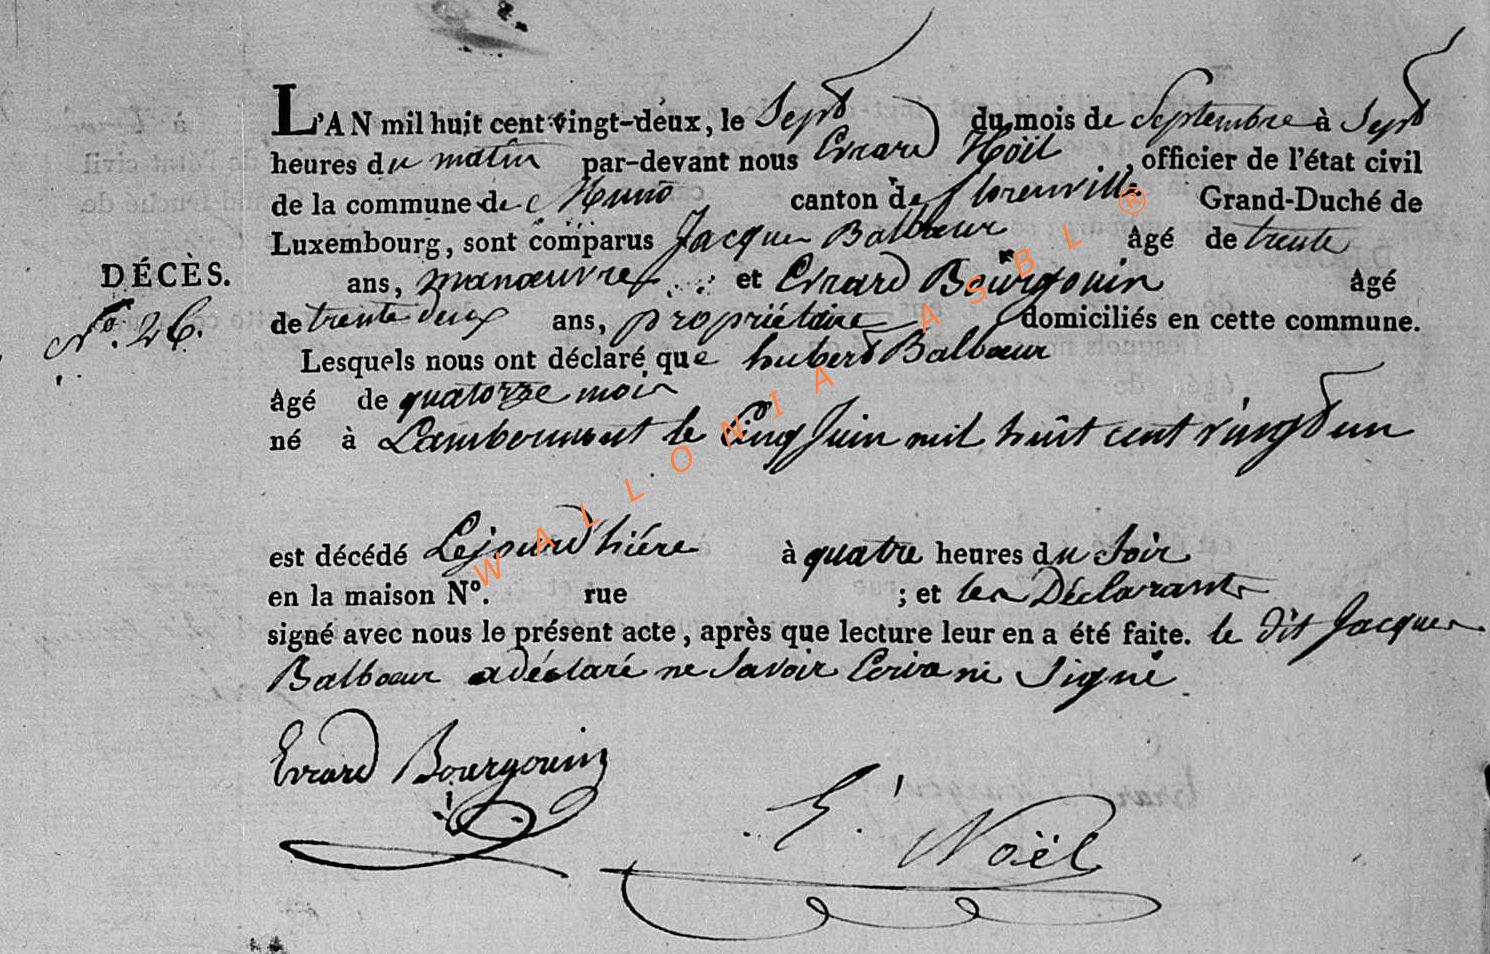 L'AN mil huit cent vingt-deux, le Sept du mois de Septembre à Sept
heures du matin par-devant nous Evrard Noël officier de l'état civil
de la commune de Muno canton de florenville Grand-Duché de
Luxembourg, sont comparus Jacques Balbœur Agé de trente
DÉCÈS. ans, manœuvre et Evrard Bourgouin Agé
N°. 26. de trente deux ans, propriétaire domiciliés en cette commune.
Lesquels nous ont déclaré que hubert Balbœur
Agé de quatorze mois
né à Lambermont le Cinq Juin mil huit cent vingt un
est décédé Le jour d'hiére à quatre heures du Soir
en la maison N°. rue ; et les Déclarants
signé avec nous le présent acte, après que lecture leur en a été faite. le dit Jacques
Balbœur a déclaré ne Savoir Ecrire ni Signé
Evrard Bourgouin
E. Noël
WALLONIA ASBL ®